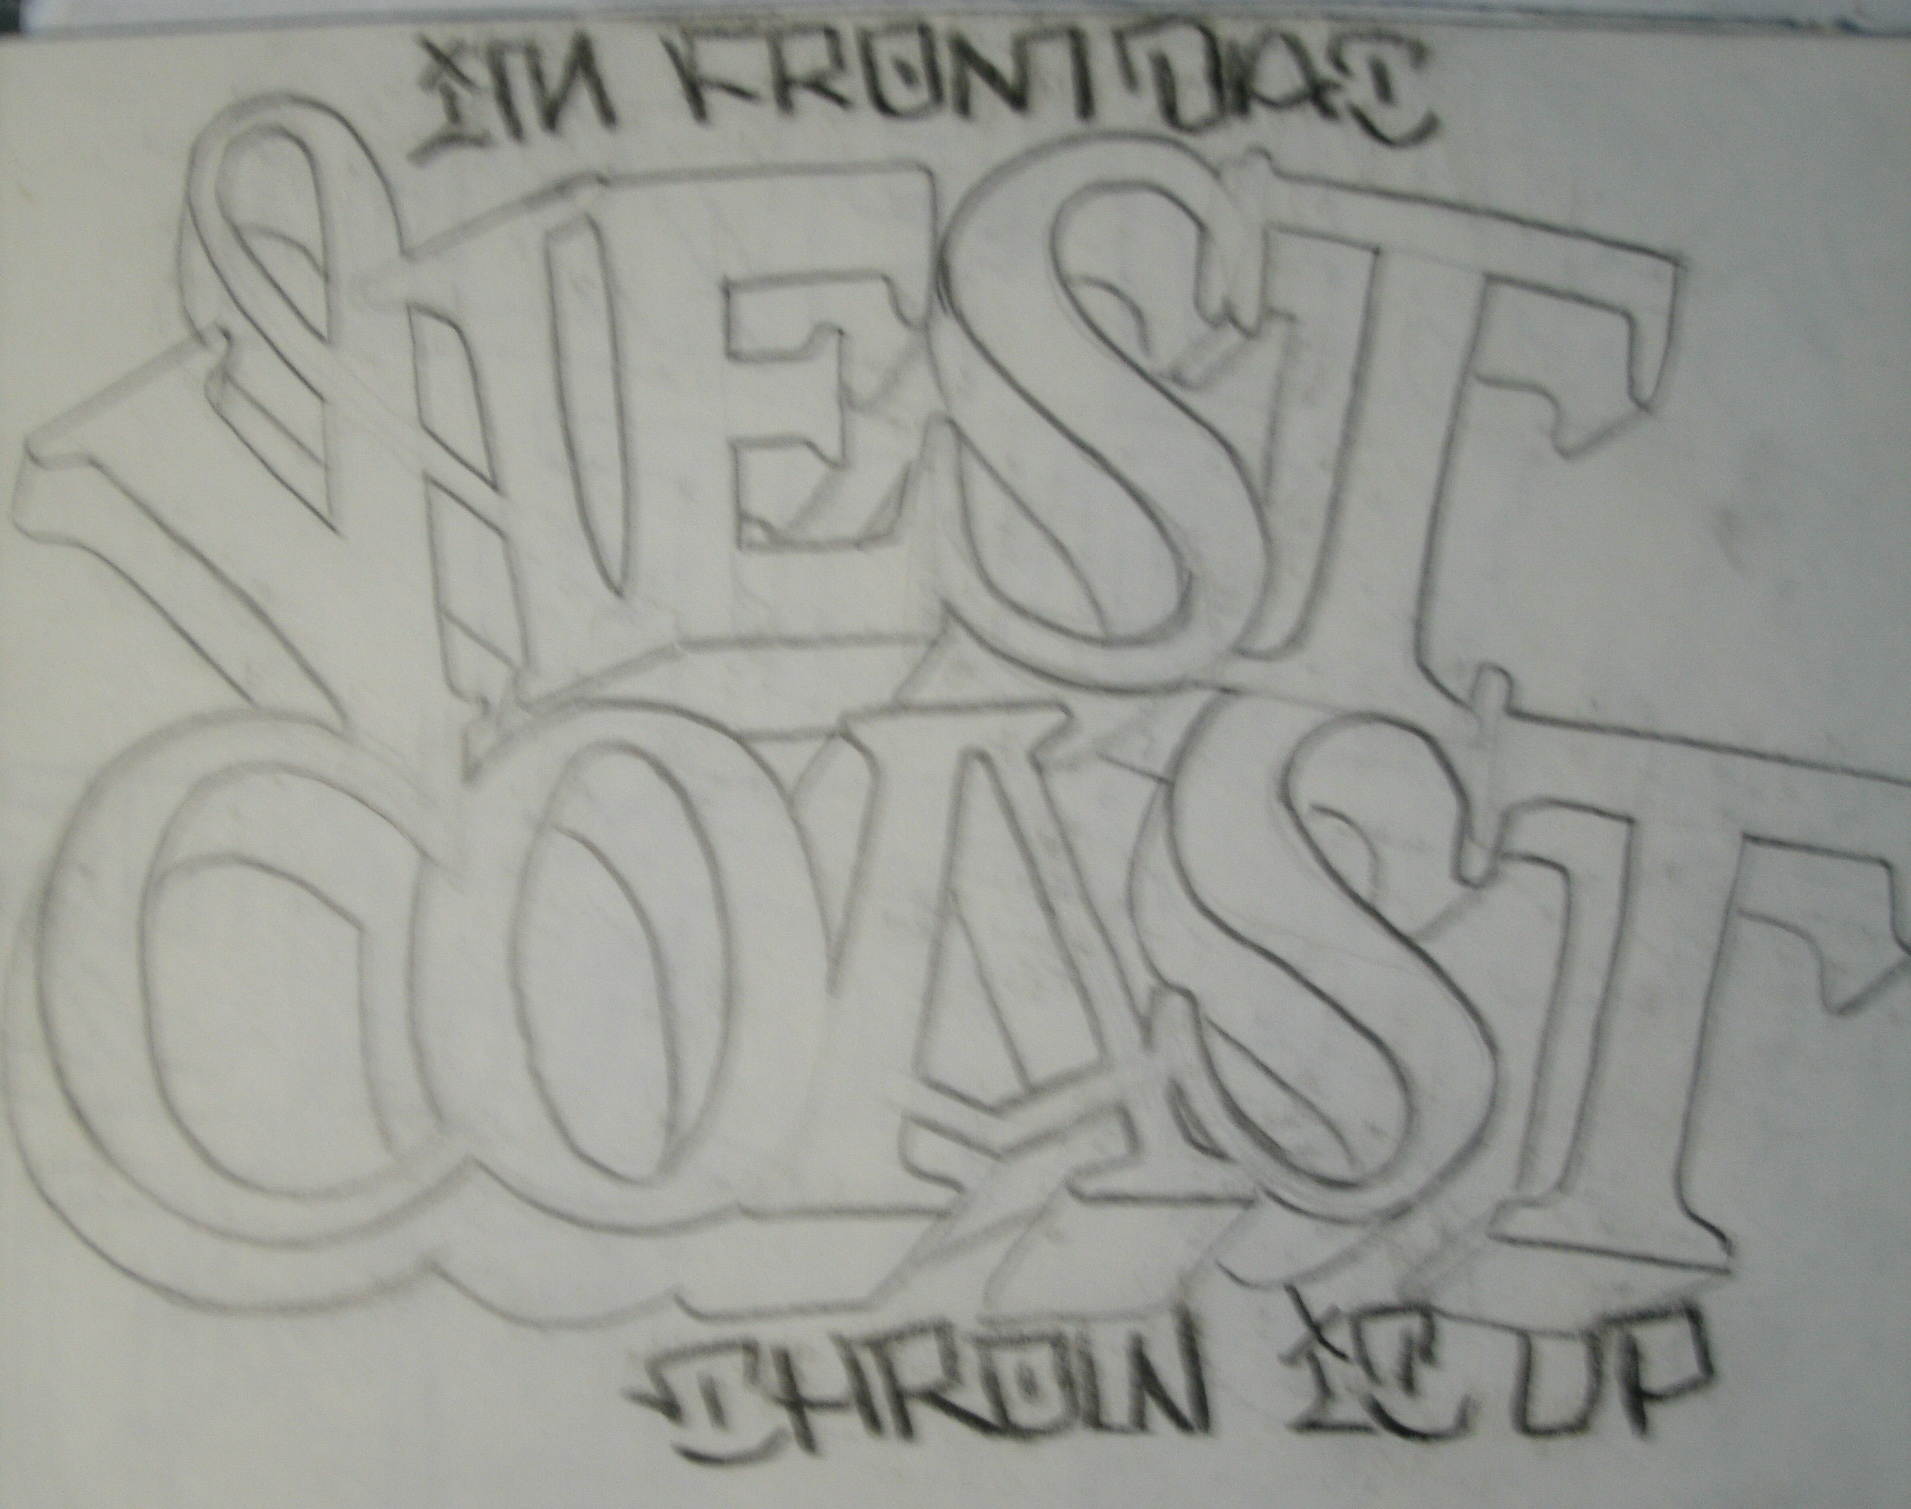 IM FROM DAT
WEST
COAST
THROW IT UP